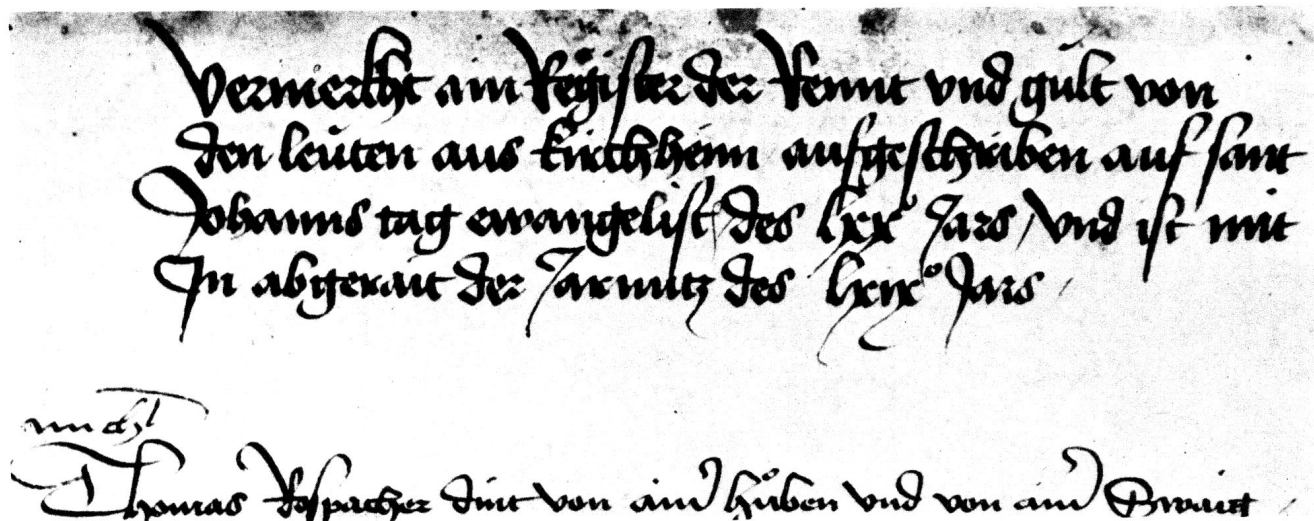 Vermerkht ain Register der Rennt vnd gult von
den leuten aus kirchhenn aufgeschriben auf sant
Johanns tag ewangelist des lxxo Jars / vnd ist mit
In abgerait der Jarnutz des lxixo Jars /
Thomas Rospacher dint von aim huben vnd von aim